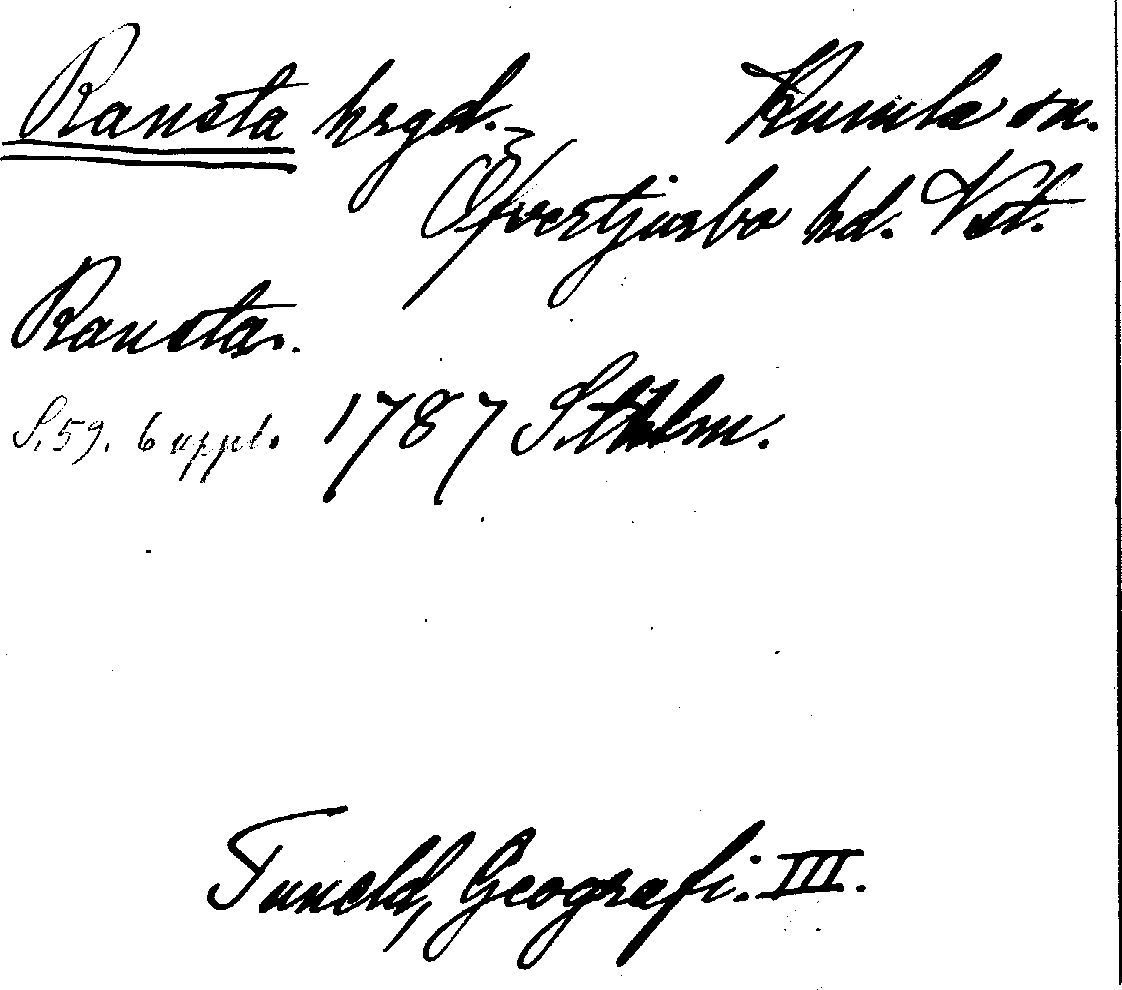 Ransta hrgd. Kumla sn.
Öfvertjurbo hd. Vst.
Ransta.
S. 59. 6 uppl. 1787 Sthlm.
Tuneld, Geografi. III.